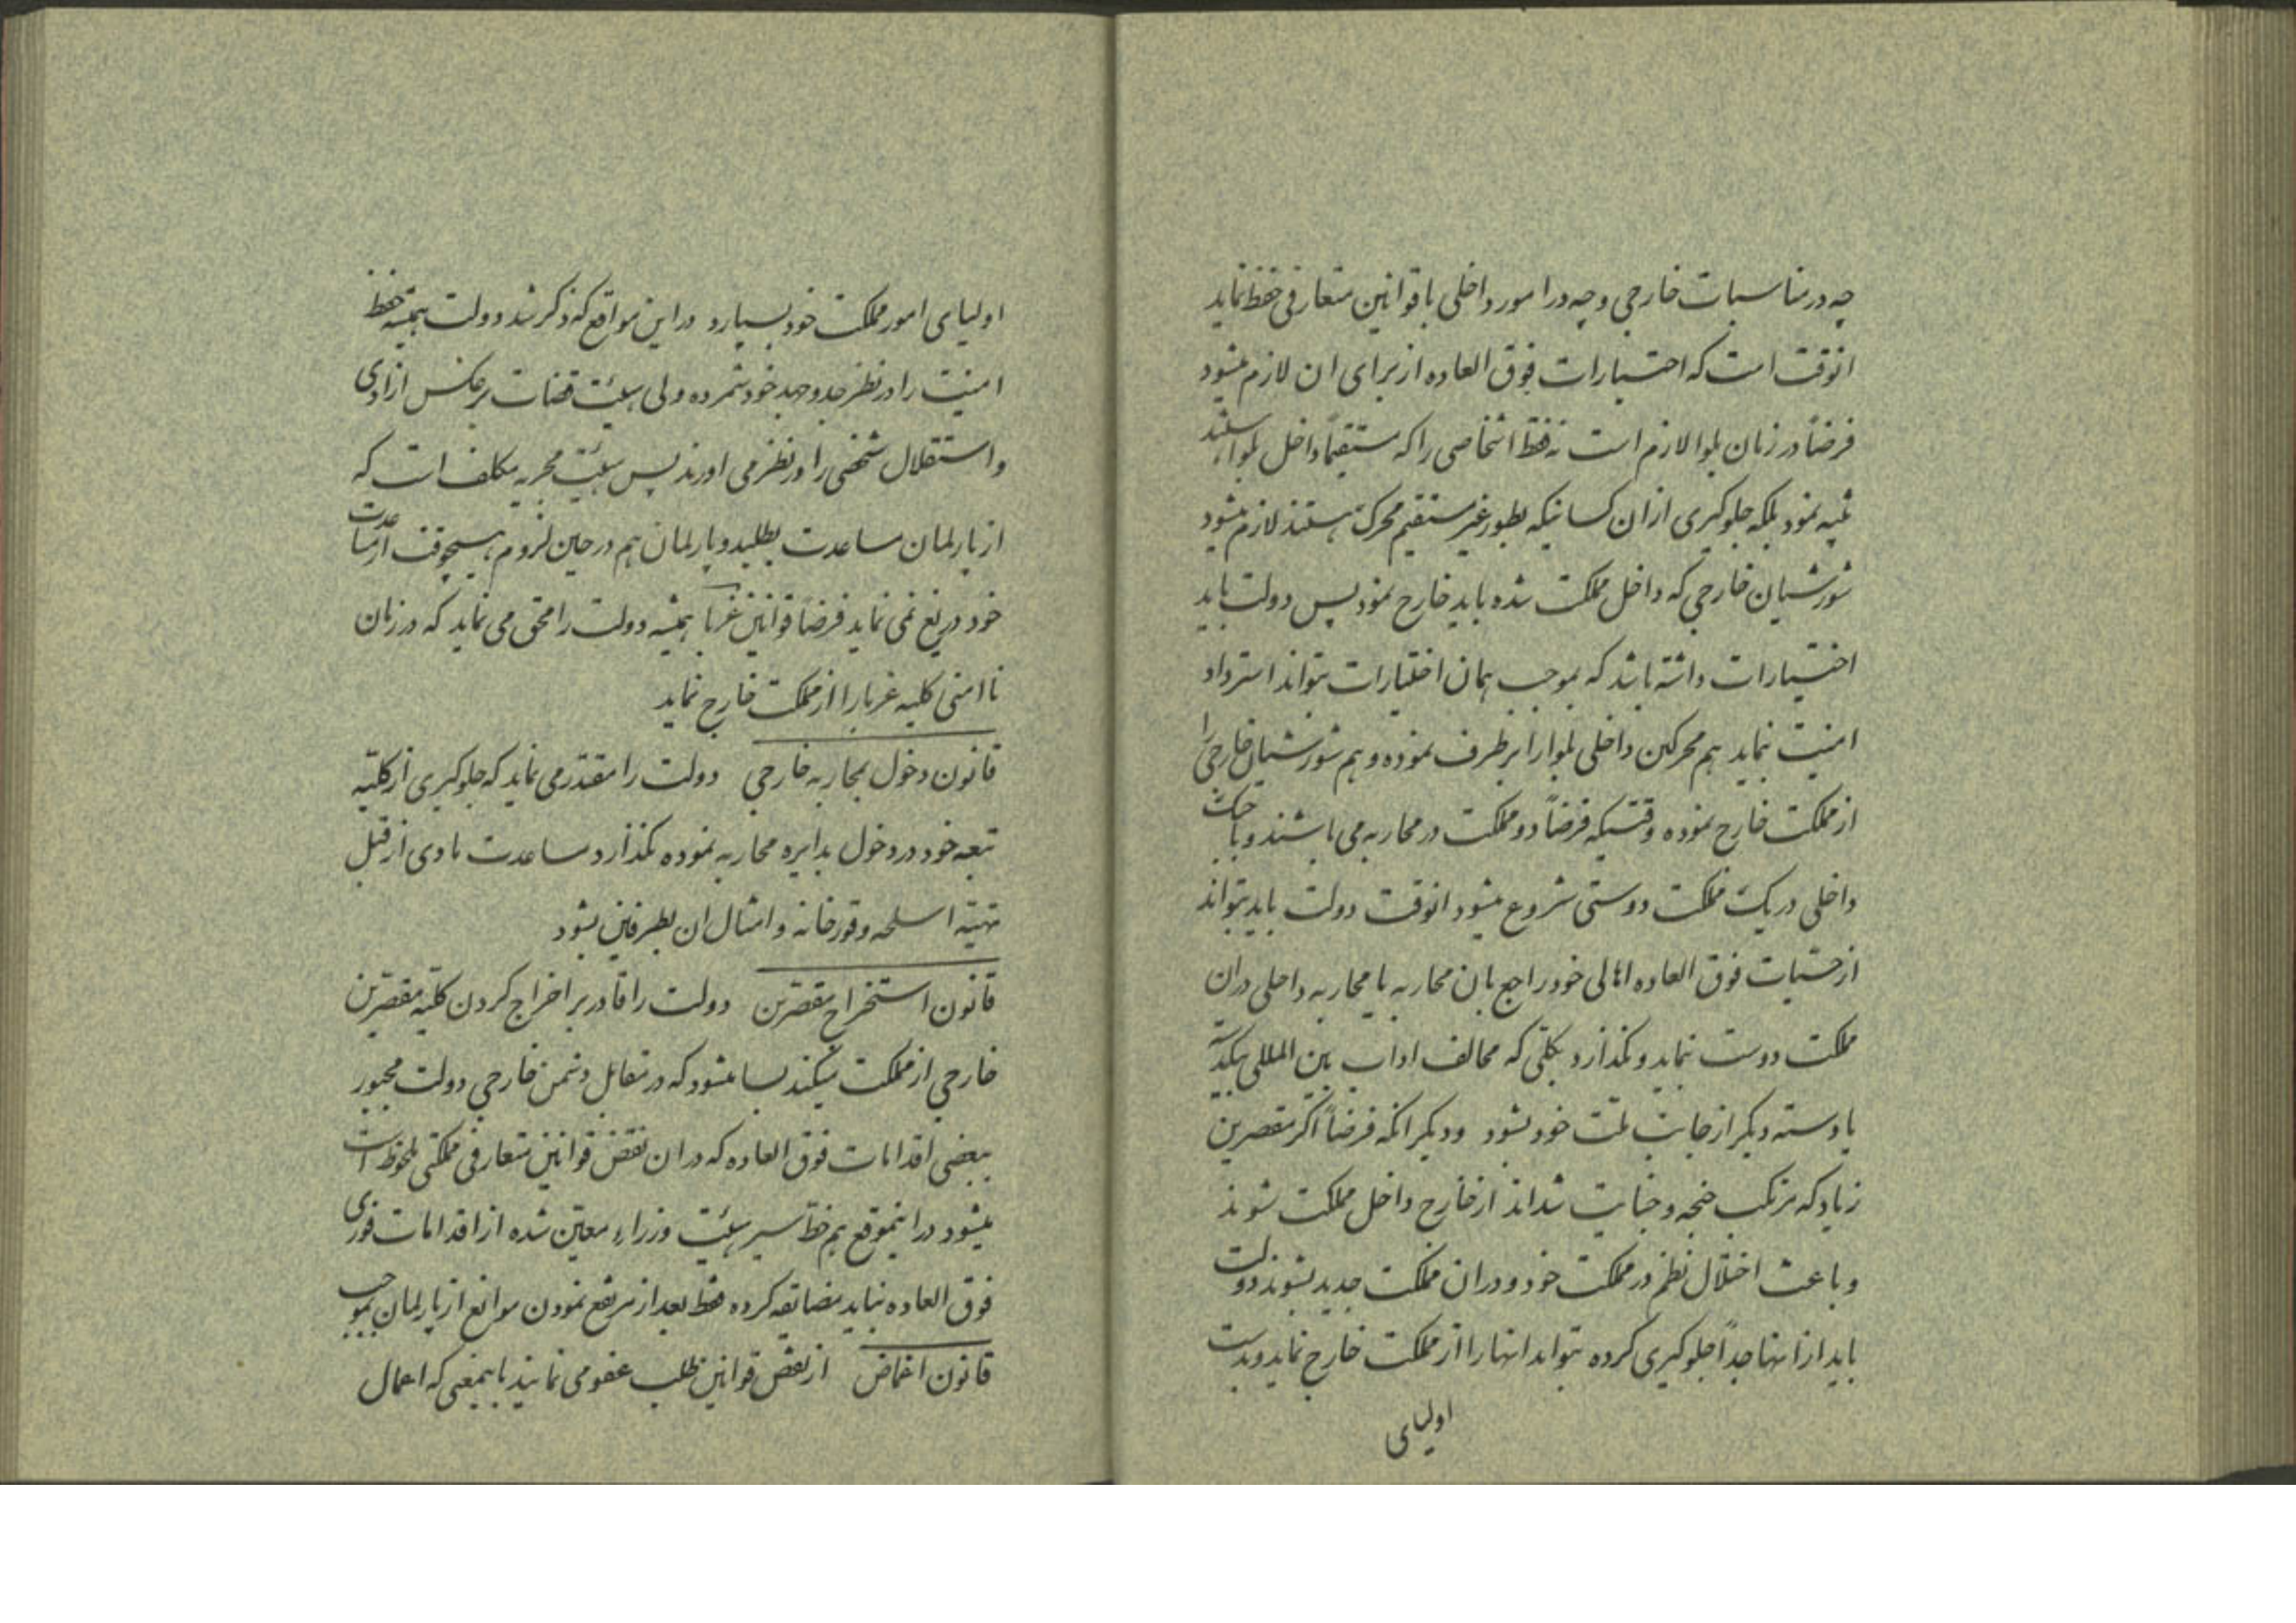 چه در مناسبات خارجی و چه در امور داخلی با قوانین متعارفی حفظ نماید
انوقت است که اختیارات فوق العاده از برای ان لازم میشود
فرضاً در زمان بلوا لازم است نه فقط اشخاصی را که مستقیماً داخل بلوا هستند
تنبیه نمود بلکه جلوگیری از ان کسانیکه بطور غیر مستقیم محرک هستند لازم میشود
شورشیان خارجی که داخل مملکت شده باید خارج نمود پس دولت باید
اختیارات داشته باشد که بموجب همان اختیارات بتواند استرداد
امنیت نماید هم محرکین داخلی بلوا را برطرف نموده و هم شورشیان خارجی را
از مملکت خارج نموده وقتیکه فرضاً دو مملکت در محاربه می باشند و یا جنگ
داخلی در یک مملکت دوستی شروع میشود انوقت دولت باید بتواند
از حسیات فوق العاده اهالی خود راجع بان محاربه یا محاربه داخلی دران
مملکت دوست نماید و نگذارد کمکی که مخالف اداب بین المللی بیکدسته
یا دسته دیگر از جانب ملت خود بشود و دیگر انکه فرضاً اگر مقصرین
زیاد که مرتکب جنحه و جنایت شده‌اند از خارج داخل مملکت شوند
و باعث اختلال نظم در مملکت خود و در ان مملکت جدید بشوند دولت
باید از انها جداً جلوگیری کرده بتواند انها را از مملکت خارج نماید و بدست
اولیای
اولیای امور مملکت خود بسپارد در این مواقع که ذکر شد دولت همیشه حفظ
امنیت را در نظر جد و جهد خود شمرده ولی هیئت قضات بر عکس ازادی
و استقلال شخصی را در نظر می اورند پس هیئت مجریه مکلف است که
از پارلمان مساعدت بطلبد و پارلمان هم در حین لزوم هیچوقت از مساعدت
خود دریغ نمی نماید فرضاً قوانین غربا همیشه دولت را محق می نماید که در زمان
نا امنی کلیه غربا را از مملکت خارج نماید
قانون دخول بمحاربه خارجی دولت را مقتدر می نماید که جلوگیری از کلیه
تبعه خود در دخول بدایره محاربه نموده نگذارد مساعدت مادی از قبیل
تهیه اسلحه و قورخانه و امثال ان بطرفین بشود
قانون استخراج مقصرین دولت را قادر بر اخراج کردن کلیه مقصرین
خارجی از مملکت میکند بسا میشود که در مقابل دشمن خارجی دولت مجبور
ببعضی اقدامات فوق العاده که در ان نقض قوانین متعارفی مملکتی ملحوظ است
میشود در اینموقع هم خط سیر هیئت وزراء معین شده از اقدامات فوری
فوق العاده نباید مضایقه کرده فقط بعد از مرتفع نمودن موانع از پارلمان بموجب
قانون اغماض از نقض قوانین طلب عفو می نمایند باینمعنی که اعمال